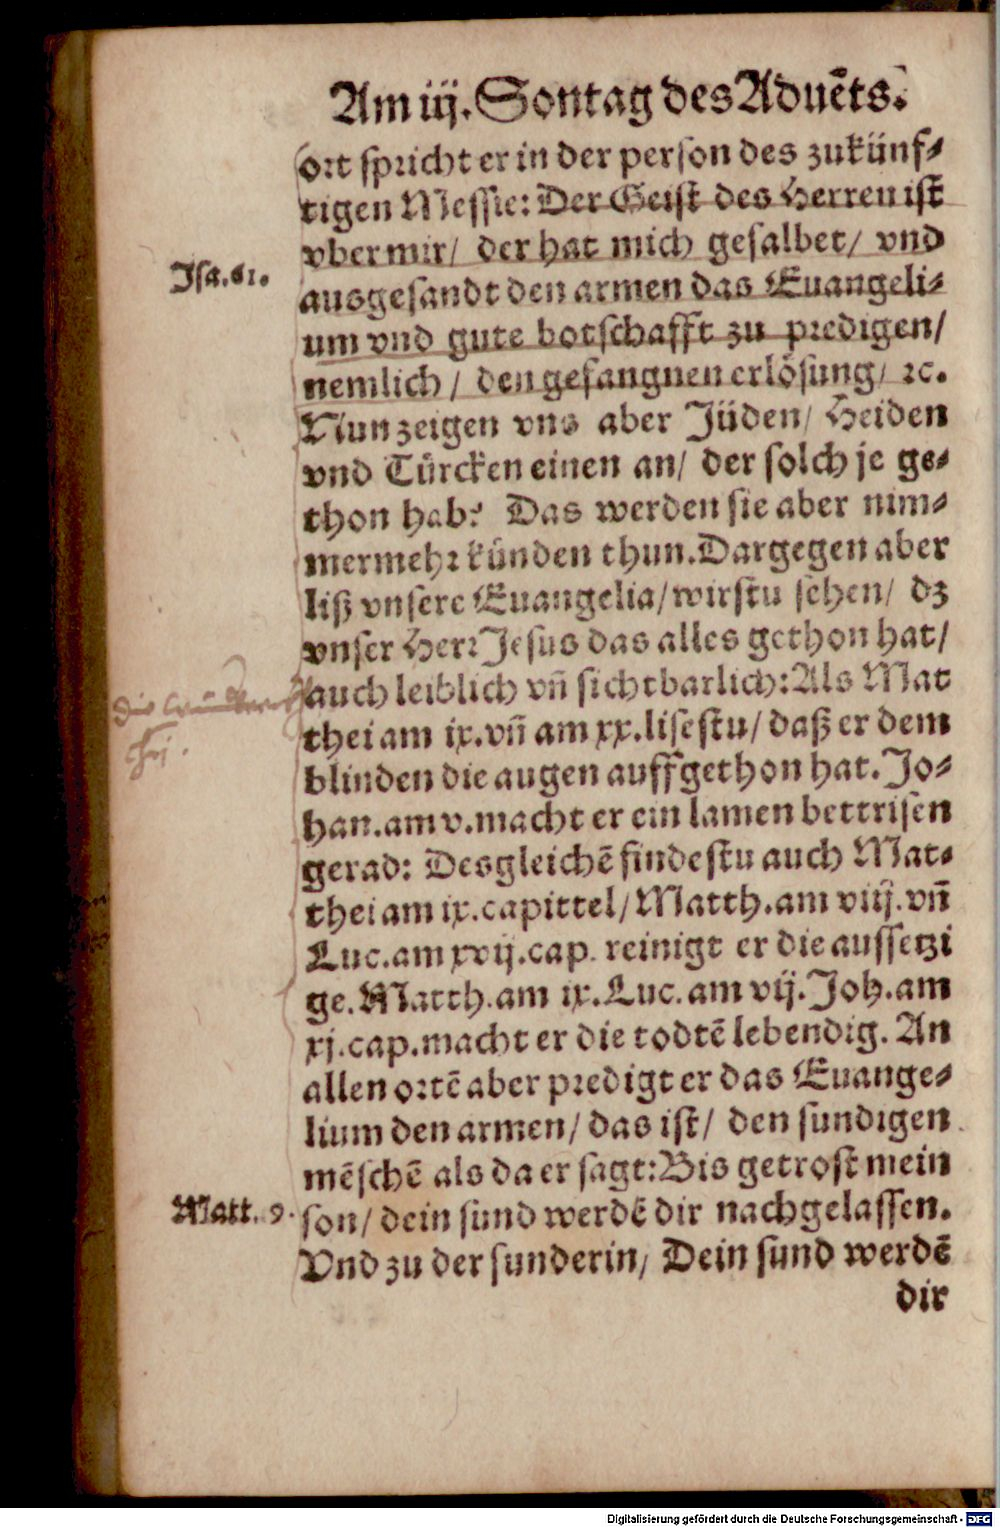 Am iij. Sontag des Aduēts.
ort spricht er in der person des zukünf⸗
tigen Messie: Der Geist des Herren ist
vber mir/ der hat mich gesalbet/ vnd
Jsa. 61.
ausgesandt den armen das Euangeli⸗
um vnd gute botschafft zu predigen/
nemlich/ den gefangnen erlösung/ ꝛc.
Nun zeigen vns aber Jüden/ Heiden
vnd Türcken einen an/ der solch je ge⸗
thon hab? Das werden sie aber nim⸗
mermehr künden thun. Dargegen aber
liß vnsere Euangelia/ wirstu sehen/ dz
vnser Herr Jesus das alles gethon hat/
auch leiblich vn̄ sichtbarlich: Als Mat
thei am ix. vn̄ am xx. lisestu/ daß er dem
blinden die augen auffgethon hat. Jo⸗
han. am v. macht er ein lamen bettrisen
gerad: Desgleichē findestu auch Mat⸗
thei am ix. capittel/ Matth. am viij. vn̄
Luc. am xvij. cap. reinigt er die aussetzi
ge. Matth. am ix. Luc. am vij. Joh. am
xj. cap. macht er die todtē lebendig. An
allen ortē aber predigt er das Euange⸗
lium den armen/ das ist/ den sundigen
mēschē als da er sagt: Bis getrost mein
Matt. 9.
son/ dein sünd werdē dir nachgelassen.
Vnd zu der sunderin/ Dein sünd werdē
dir
Digitalisierung gefördert durch die Deutsche Forschungsgemeinschaft - DFG